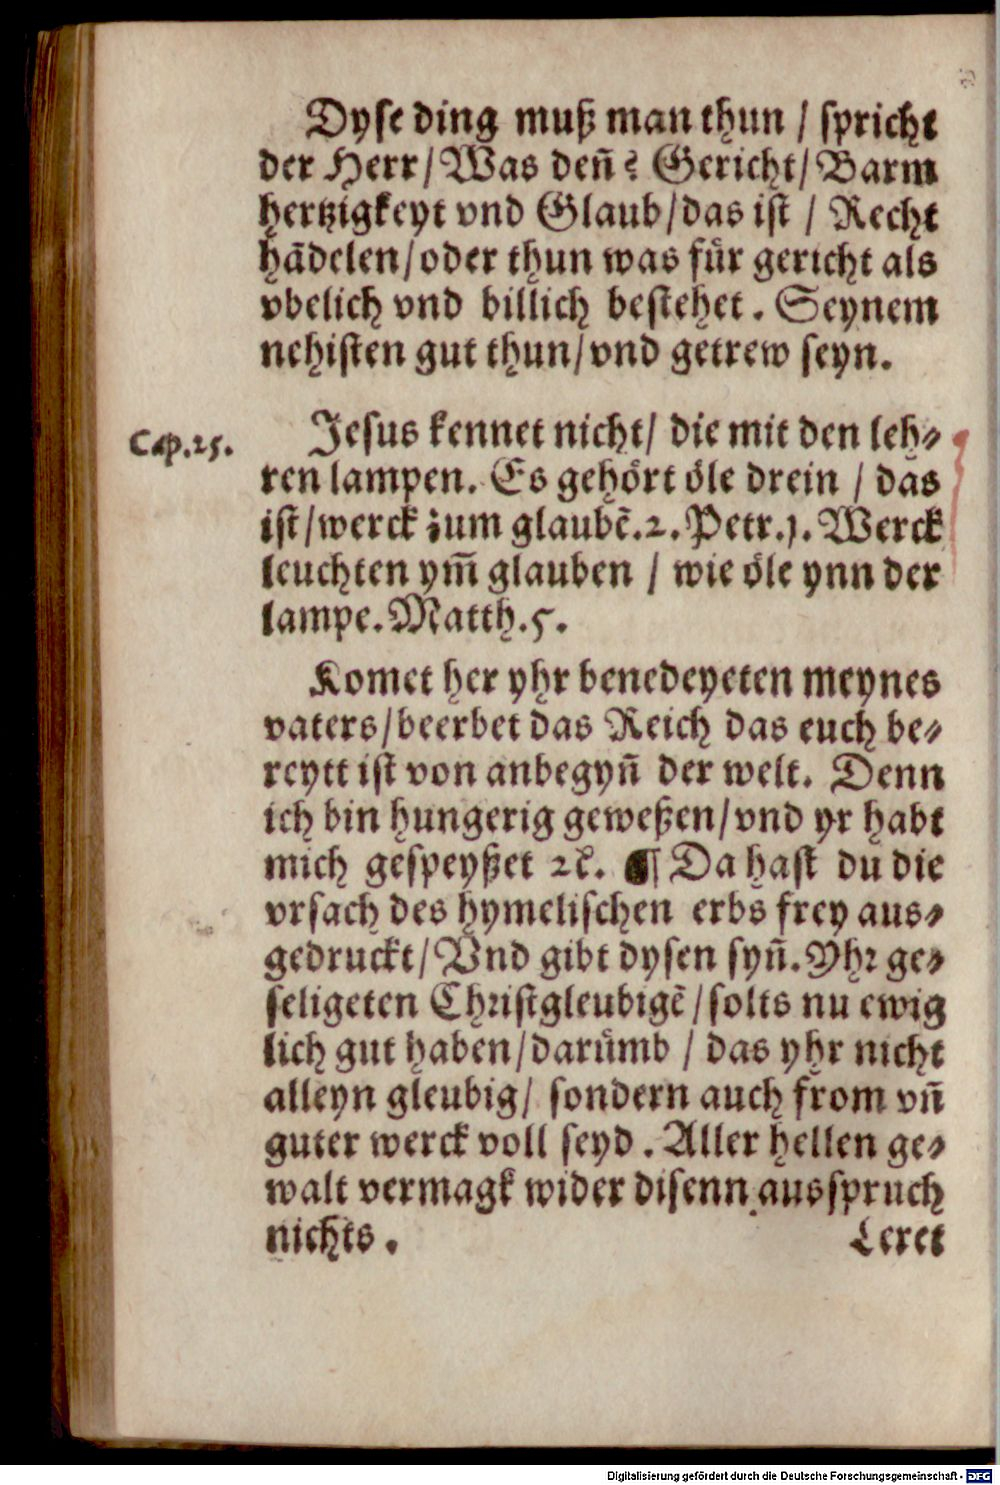 Dyse ding muß man thun / spricht
der Herr / Was deñ? Gericht / Barm
hertzigkeyt vnd Glaub / das ist / Recht
hãdelen / oder thun was für gericht als
vbelich vnd billich bestehet. Seynem
nehisten gut thun / vnd getrew seyn.
Cap. 25.
Jesus kennet nicht / die mit den leh⸗
ren lampen. Es gehört öle drein / das
ist / werck zum glaubẽ. 2. Petr. 1. Werck
leuchten ym̃ glauben / wie öle ynn der
lampe. Matth. 5.
Komet her yhr benedeyeten meynes
vaters / beerbet das Reich das euch be⸗
reytt ist von anbegyñ der welt. Denn
ich bin hungerig geweßen / vnd yr habt
mich gespeyßet ꝛc. ¶ Da hast du die
vrsach des hymelischen erbs frey aus⸗
gedruckt / Vnd gibt dysen syñ. Yhr ge⸗
seligeten Christgleubigẽ / solts nu ewig
lich gut haben / darümb / das yhr nicht
alleyn gleubig / sondern auch from vñ
guter werck voll seyd. Aller hellen ge⸗
walt vermagk wider disenn ausspruch
nichts.
Leret
Digitalisierung gefördert durch die Deutsche Forschungsgemeinschaft - DFG